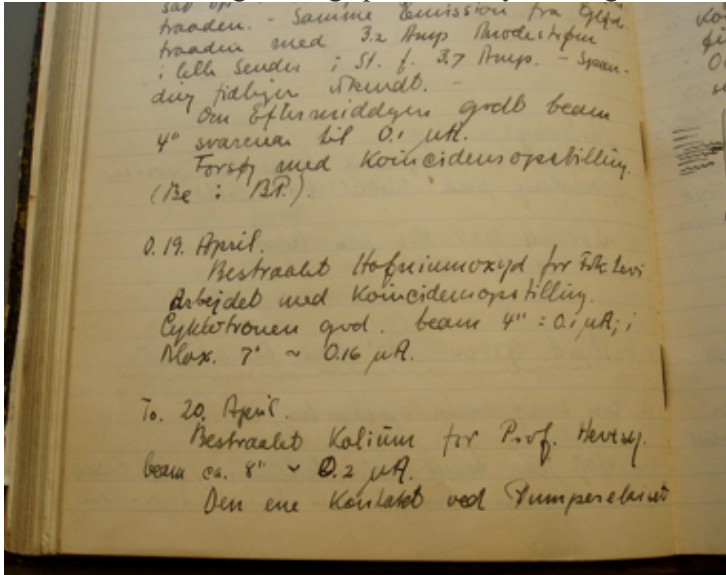 traaden. - Samme Emission fra Glød
traaden med 3.2 Amp Anodestrøm
i lille Sender i St. f. 3.7 Amps. - Spæn-
ding tidligere ukendt. -
Om Eftermiddagen godt beam
4" svarende til 0.1 µA.
Forsøg med Koincidensopstilling
(Be i BP.)
O. 19. April.
Bestraalet Hafniumoxyd for Frk Levi
Arbejdet med Koincidensopstilling.
Cyklotronen god. beam 4" = 0.1 µA; i
Max. 7" ~ 0.16 µA.
To. 20. April.
Bestraalet Kalium for Prof. Hevesy.
beam ca. 8" ~ 0.2 µA.
Den ene Kontakt ved